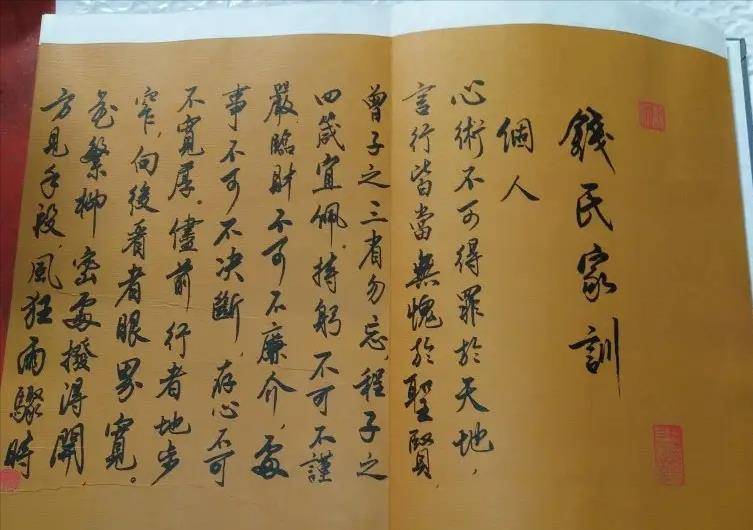 錢氏家訓
個人
心術不可得罪於天地，
言行皆當無愧於聖賢，
曾子之三省勿忘，程子之
四箴宜佩。持躬不可不謹
嚴，臨財不可不廉介，處
事不可不决斷，存心不可
不寬厚。儘前行者地步
窄，向後看者眼界寬。
花繁柳密處撥得開
方見手段，風狂雨驟時